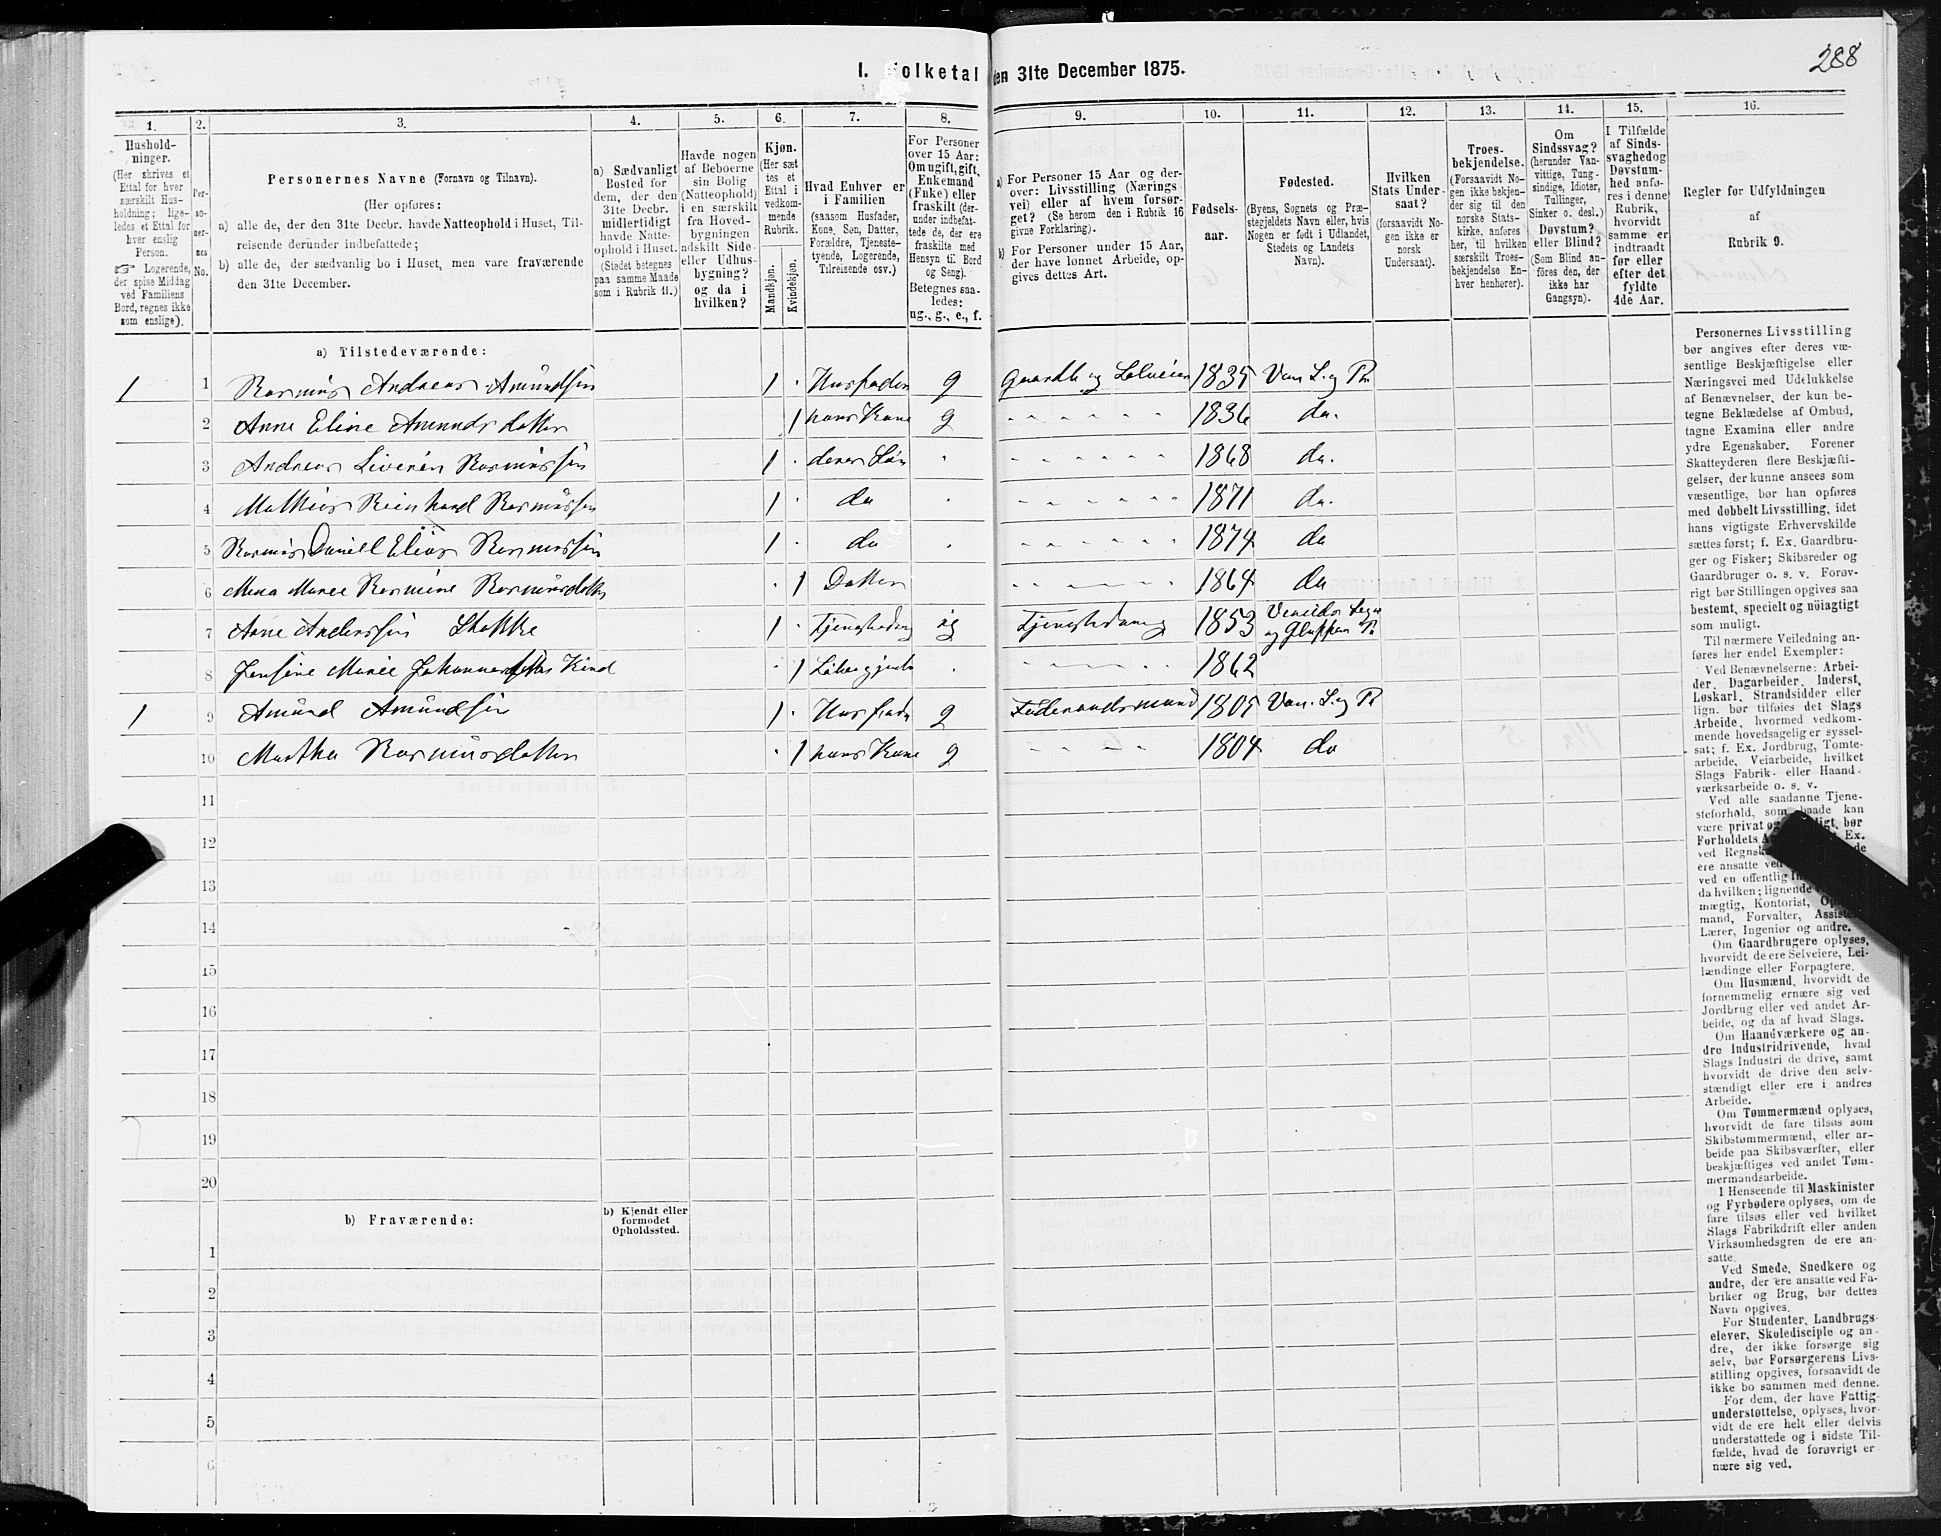 288
I. Folketal den 31te December 1875.
1. 2. 3. 4. 5. 6. 7. 8. 9. 10. 11. 12. 13. 14. 15. 16.
Hushold-
ninger.
(Her skrives et
Ettal for hver
særskilt Hus-
holdning; lige-
ledes et Ettal for
hver enslig
Person.
☞ Logerende,
der spise Middag
ved Familiens
Bord, regnes ikke
som enslige).
Per-
so-
ner-
nes
No.
Personernes Navne (Fornavn og Tilnavn).
(Her opføres:
a) alle de, der den 31te Decbr. havde Natteophold i Huset, Til-
reisende derunder indbefattede;
b) alle de, der sædvanlig bo i Huset, men vare fraværende
den 31te December.
a) Sædvanligt
Bosted for
dem, der den
31te Decbr.
midlertidigt
havde Natte-
ophold i Huset.
(Stedet betegnes
paa samme Maade
som i Rubrik 11.)
Havde nogen
af Beboerne
sin Bolig
(Natteophold)
i en særskilt
fra Hoved-
bygningen
adskilt Side-
eller Udhus-
bygning?
og da i
hvilken?
Kjøn.
(Her sæt
tes et
Ettal i
vedkom-
mende
Rubrik.
Mandkjøn.
Kvindekjøn.
Hvad Enhver er
i Familien
(saasom Husfader,
Kone, Søn, Datter,
Forældre, Tjeneste-
tyende, Logerende,
Tilreisende osv.)
For Personer
over 15 Aar:
Om ugift, gift,
Enkemand
(Enke) eller
fraskilt (der-
under indbefat-
tede de, der ere
fraskilte med
Hensyn til Bord
og Seng).
Betegnes saa-
ledes:
ug., g., e., f.
a) For Personer 15 Aar og der-
over: Livsstilling (Nærings-
vei) eller af hvem forsør-
get? (Se herom den i Rubrik 16
givne Forklaring).
b) For Personer under 15 Aar,
der have lønnet Arbeide, op-
gives dettes Art.
Fødsels-
aar.
Fødested.
(Byens, Sognets og Præ-
stegjeldets Navn eller, hvis
Nogen er født i Udlandet,
Stedets og Landets
Navn).
Hvilken
Stats Under-
saat?
(forsaavidt No-
gen ikke er
norsk
Undersaat).
Troes-
bekjendelse.
(Forsaavidt No-
gen ikke bekjen-
der sig til den
norske Stats-
kirke, anføres
her, til hvilken
særskilt Troes-
bekjendelse En-
hver henhører).
Om
Sindssvag?
(herunder Van-
vittige, Tung-
sindige, Idioter,
Tullinger,
Sinker o. desl.)
Døvstum?
eller Blind?
(Som Blind an-
føres den, der
ikke har
Gangsyn).
I Tilfælde
af Sinds-
svaghed og
Døvstum-
hed anfø-
res i denne
Rubrik,
hvorvidt
samme er
indtraadt
før eller
efter det
fyldte
4de Aar.
Regler for Udfyldningen
af
Rubrik 9.
a) Tilstedeværende:
1 1 Rasmus Andreas Amundsen 1 · Husfader g Gaardb og Selveier 1835 Van S. og Pr
2 Anne Eline Amundsdatter 1 hans Kone g 1836 do.
3 Andreas Severin Rasmussen 1 · deres Søn 1868 do.
4 Mathias Reinhard Rasmussen 1 · do 1871 do.
5 Rasmus Daniell Elias Rasmussen 1 · do 1874 do
6 Rasmine Rasmusdatter · 1 Datter 1864 do
7 Arne Anderssen Stokke 1 · Tjenestedreng ug Tjenestedreng 1853
8 Jensine Marie Kind · 1 1862
1 9 Amund Amundsen 1 · Husfader g Føderaadsmand 1805 Van. S. og Pr
10 Martha Rasmusdatter · 1 hans Kone g 1804 do
11
12
13
14
15
16
17
18
19
20
b) Fraværende:
b) Kjendt eller
formodet
Opholdssted.
1
2
3
4
5
6
Personernes Livsstilling
bør angives efter deres væ-
sentlige Beskjæftigelse eller
Næringsvei med Udelukkelse
af Benævnelser, der kun be-
tegne Beklædelse af Ombud,
tagne Examina eller andre
ydre Egenskaber. Forener
Skatteyderen flere Beskjæfti-
gelser, der kunne ansees som
væsentlige, bør han opføres
med dobbelt Livsstilling, idet
hans vigtigste Erhvervskilde
sættes først; f. Ex. Gaardbru-
ger og Fisker; Skibsreder og
Gaardbruger o. s. v. Forøv-
rigt bør Stillingen opgives saa
bestemt, specielt og nöiagtigt
som muligt.
Til nærmere Veiledning an-
føres her endel Exempler:
Ved Benævnelserne: Arbei-
der, Dagarbeider, Inderst,
Løskarl, Strandsidder eller
lign. bør tilføies det Slags
Arbeide, hvormed vedkom-
mende hovedsagelig er syssel-
sat; f. Ex. Jordbrug, Tomte-
arbeide, Veiarbeide, hvilket
Slags Fabrik- eller Haand-
værksarbeide o. s. v.
Ved alle saadanne Tjene-
steforhold, som baade kan
være privat og
bør
Forholdets
Ex.
ved
ere ansatte
ved en offentlig
da hvilken; lignende
mægtig, Kontorist,
mand, Forvalter,
Lærer, Ingeniør og andre.
Om Gaardbrugere oplyses,
hvorvidt de ere Selveiere, Lei-
lændinge eller Forpagtere.
Om Husmænd, hvorvidt de
fornemmelig ernære sig ved
Jordbrug eller ved andet Ar-
beide, og da af hvad Slags.
Om Haandværkere og an-
dre Industridrivende, hvad
Slags Industri de drive, samt
hvorvidt de drive den selv-
stændigt eller ere i andres
Arbeide.
Om Tømmermænd oplyses,
hvorvidt de fare tilsøs som
Skibstømmermænd, eller ar-
beide paa Skibsværfter, eller
beskjæftiges ved andet Tøm-
mermandsarbeide.
I Henseende til Maskinister
og Fyrbødere oplyses, om de
fare tilsøs eller ved hvilket
Slags Fabrikdrift eller anden
Virksomhedsgren de ere an-
satte.
Ved Smede, Snedkere og
andre, der ere ansatte ved Fa-
briker og Brug, bør dettes
Navn opgives.
For Studenter, Landbrugs-
elever, Skoledisciple og an-
dre, der ikke forsørge sig
selv, bør Forsørgerens Livs-
stilling opgives, forsaavidt de
ikke bo sammen med denne.
For dem, der have Fattig-
understøttelse, oplyses, hvor-
vidt de ere helt eller delvis
understøttede og i sidste Til-
fælde, hvad de forøvrigt er-
nære sig ved.